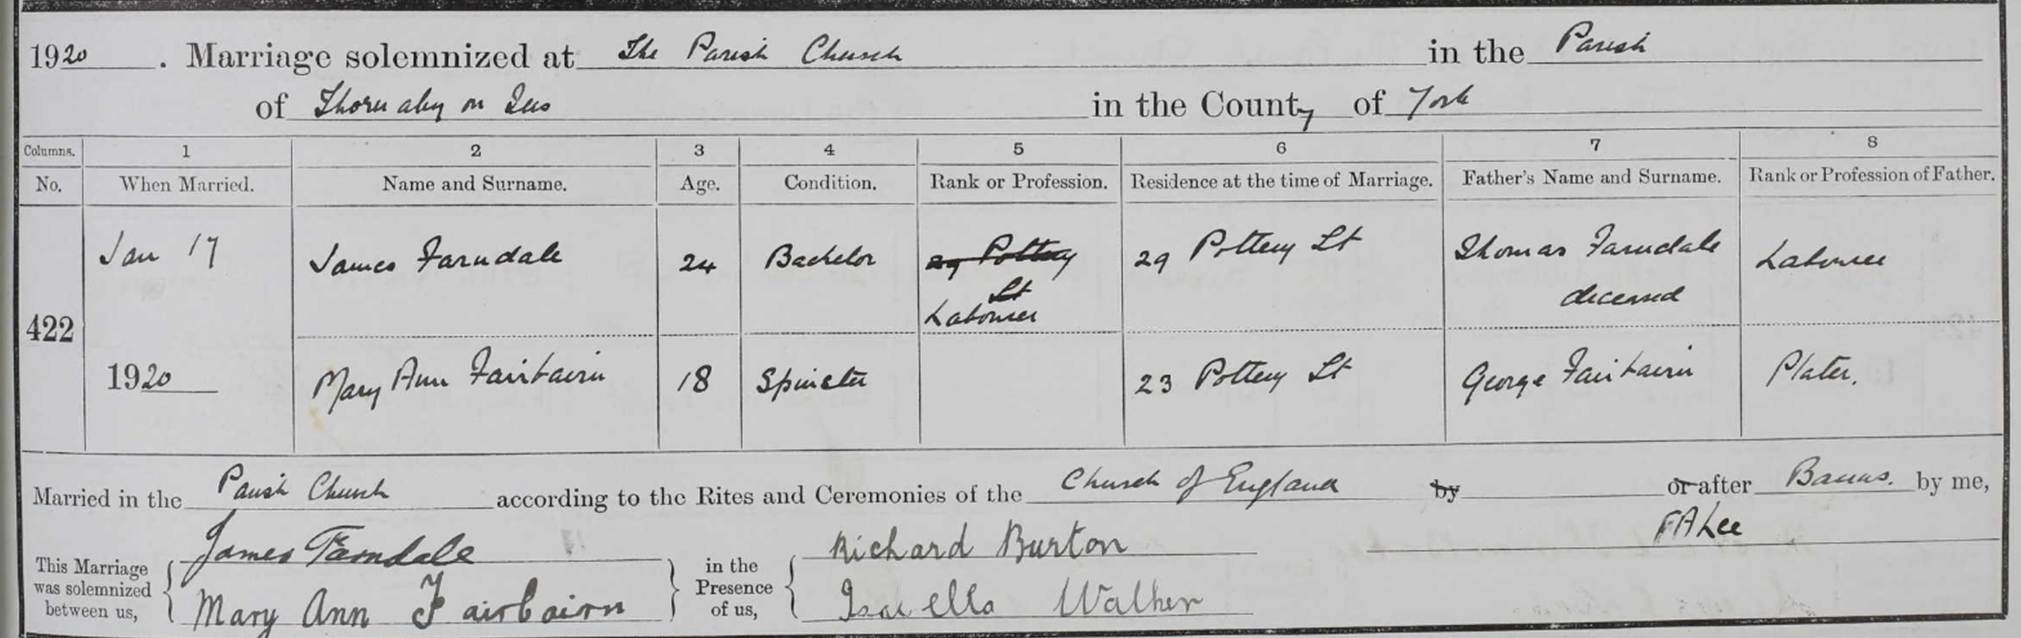 1920. Marriage solemnized at The Parish Church in the Parish
of Thornaby on Tees in the County of York
Columns. 1 2 3 4 5 6 7 8
No. When Married. Name and Surname. Age. Condition. Rank or Profession. Residence at the time of Marriage. Father's Name and Surname. Rank or Profession of Father.
422
Jan 17 James Farndale 24 Bachelor 29 Pottery 29 Pottery St Thomas Farndale Labourer
St deceased
Labourer
1920 Mary Ann Fairbairn 18 Spinster 23 Pottery St George Fairbairn Plater.
Married in the Parish Church according to the Rites and Ceremonies of the Church of England by or after Banns. by me,
James Farndale Richard Burton FALee
This Marriage was solemnized between us, in the Presence of us,
Mary Ann Fairbairn Isabella Walker